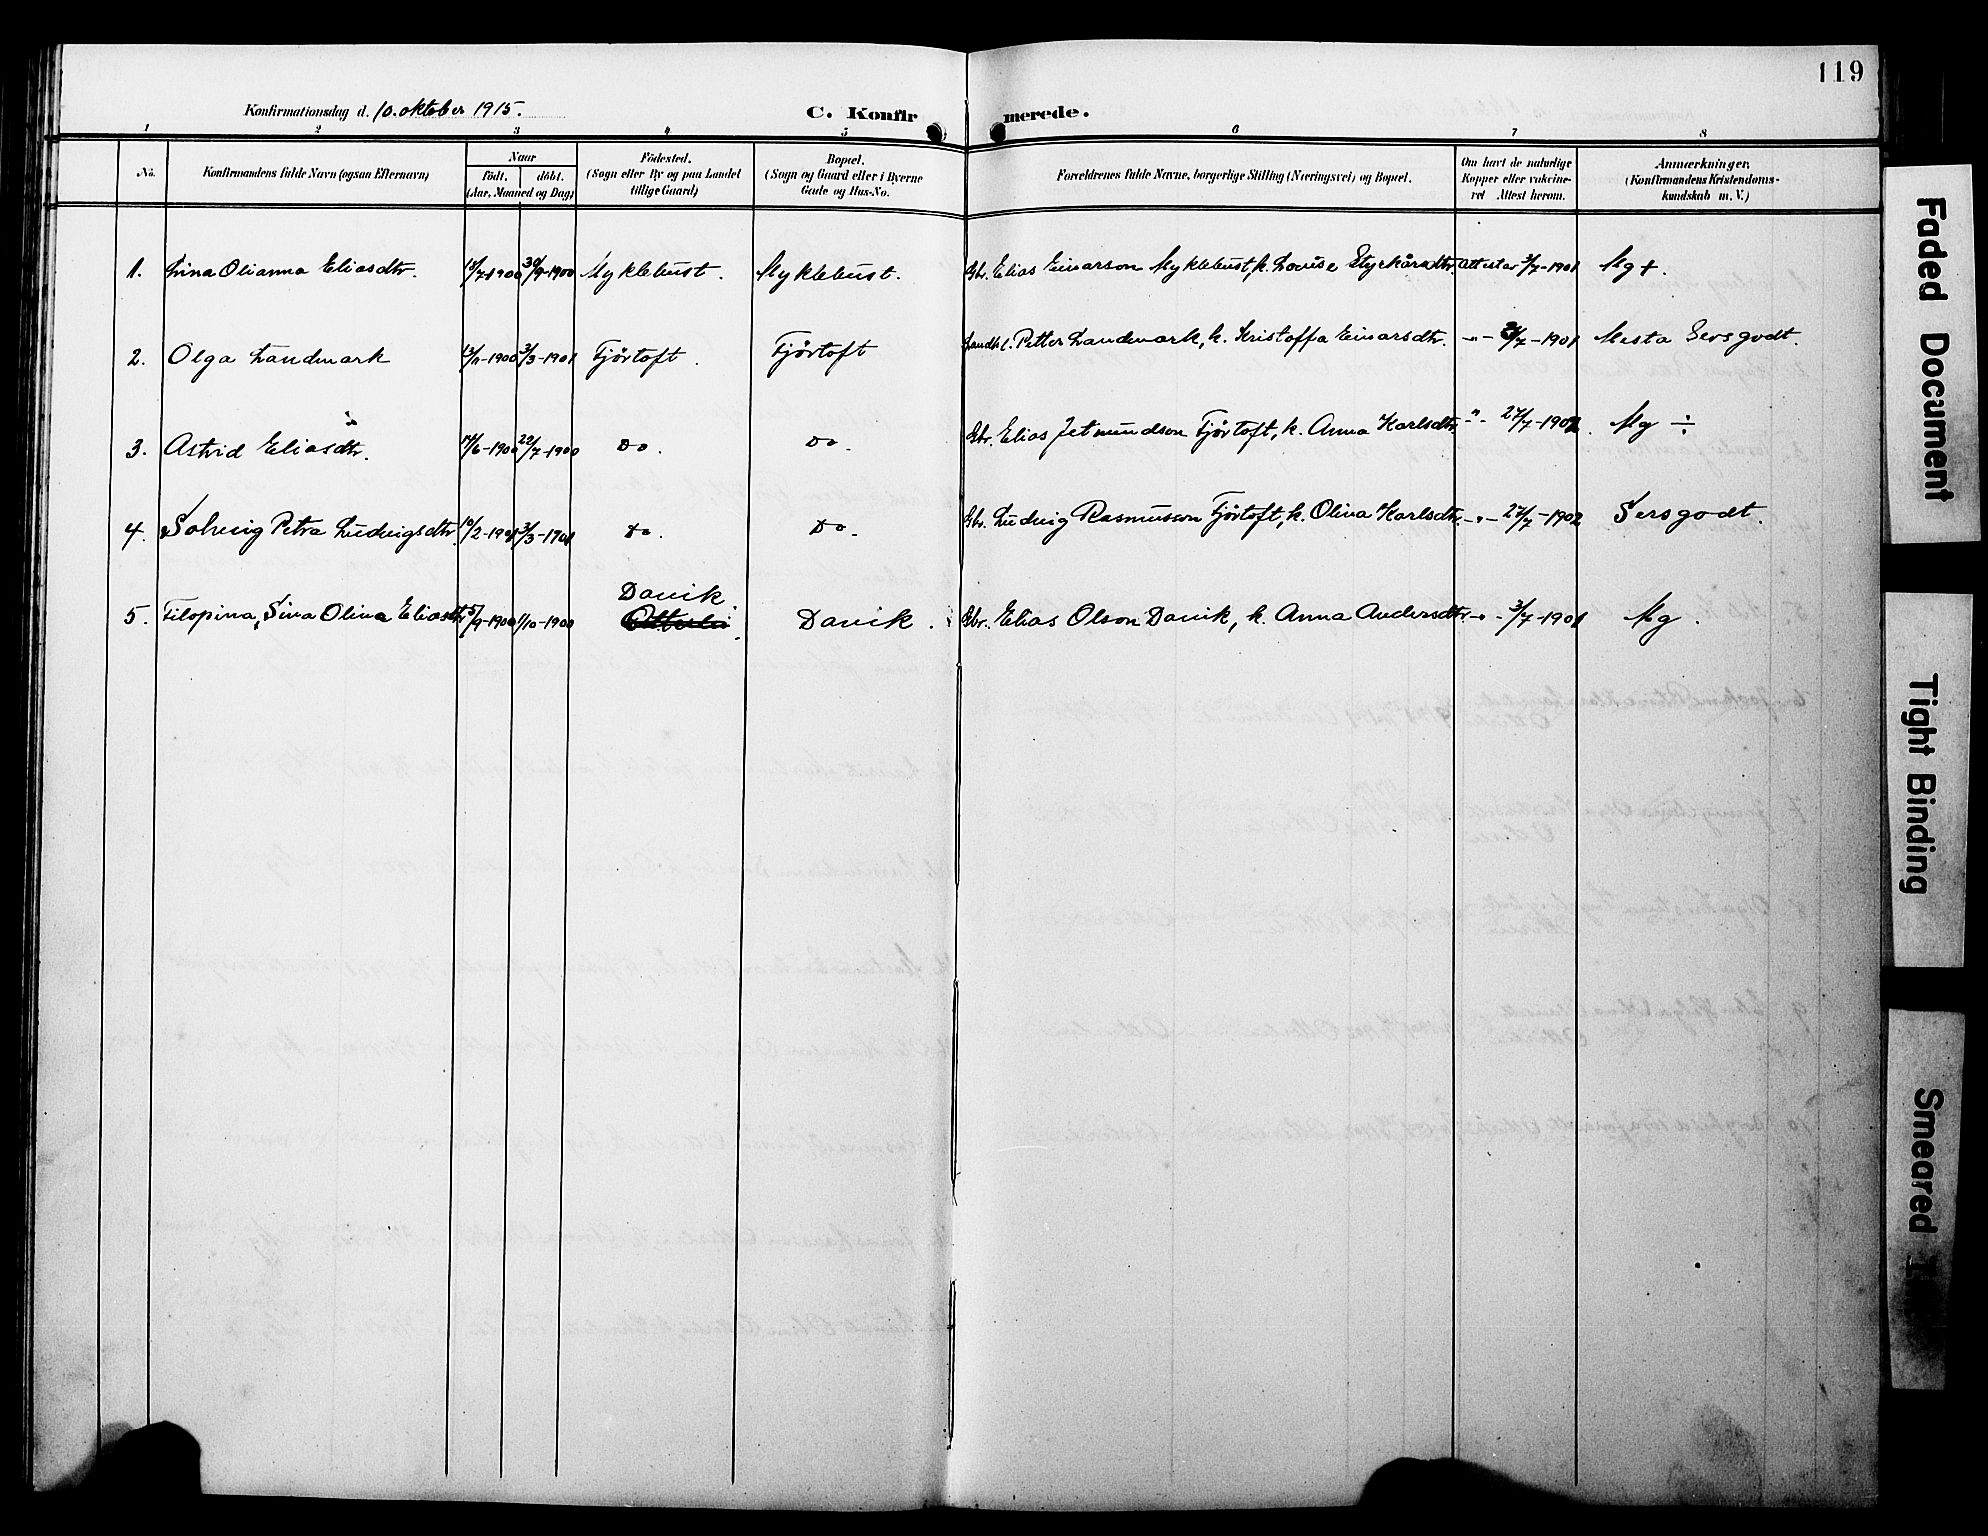 119
Konfirmationsdag d. 10. oktober 1915.
C. Konfirmerede.
1 2 3 4 5 6 7 8
No.
Konfirmandens fulde Navn (ogsaa Efternavn)
Naar
födt. döbt.
(Aar, Maaned og Dag)
Födested.
(Sogn eller By og paa Landet
tillige Gaard)
Bopæl.
(Sogn og Gaard eller i Byerne
Gade og Hus-No.
Forældrenes fulde Navne, borgerlige Stilling (Næringsvei) og Bopæl.
Om havt de naturlige
Kopper eller vakcine-
ret Attest herom.
Anmærkninger.
(Konfirmandens Kristendoms-
kundskab m. V.)
1. Lina Olianna Eliasdtr. 13/7-1900 30/9-1900 Myklebust. Myklebust. Gbr. Elias Einarson Myklebust, k. Louise Styrkårsdtr. Attester 3/7-1901 Mg +.
2. Olga Landmark 13/11-1900 3/3-1901 Fjörtoft. Fjörtoft Landh. Petter Landmark, k. Kristoffa Einarsdtr. -"- /7-1901 Mesta Sersgodt.
3. Astrid Eliasdtr. 14/6-1900 22/7-1900 Do. Do. Gbr. Elias Jetmundson Fjörtoft, k. Anna Karlsdtr. " 27/7-1902. Mg ÷
4. Solveig Petra Ludvigsdtr. 10/2-1901 3/3-1901 Do. Do. Gbr. Ludvig Rasmusson Fjörtoft, k. Olina Karlsdtr. -"- 27/7-1902 Sersgodt.
5. Filopina, Sina Olina Eliasdtr 5/9-1900 1/10-1900 Davik Davik. Gbr. Elias Olson Davik, k. Anna Andersdtr. -"- 3/7-1901 Mg.
Faded Document
Tight Binding
Smeared